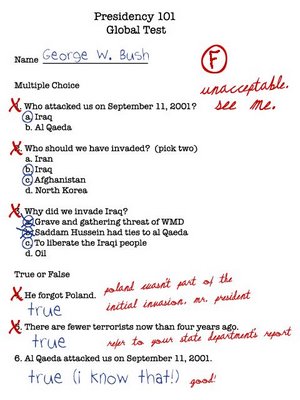 Presidency 101
Global Test
Name George W. Bush
F
unacceptable.
see me.
Multiple Choice
X 1. Who attacked us on September 11, 2001?
a. Iraq
b. Al Qaeda
X 2. Who should we have invaded? (pick two)
a. Iran
b. Iraq
c. Afghanistan
d. North Korea
X 3. Why did we invade Iraq?
a. Grave and gathering threat of WMD
b. Saddam Hussein had ties to al Qaeda
c. To liberate the Iraqi people
d. Oil
True or False
X He forgot Poland.
true
poland wasn't part of the
initial invasion, mr. president
X 5. There are fewer terrorists now than four years ago.
true
refer to your state department's report
6. Al Qaeda attacked us on September 11, 2001.
true (i know that!)
good!